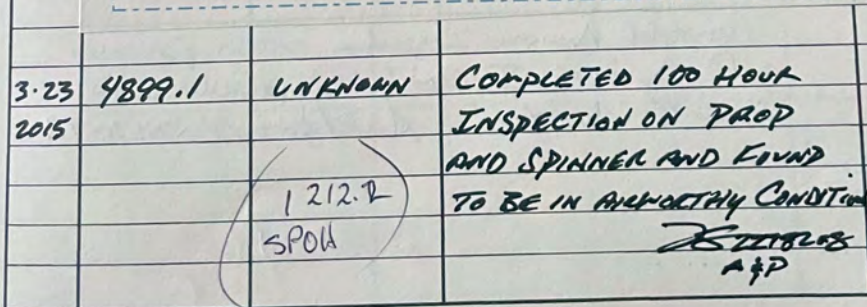 3-23 4899.1 UNKNOWN COMPLETED 100 HOUR
2015 INSPECTION ON PROP
AND SPINNER AND FOUND
1212.2 TO BE IN AIRWORTHY CONDITION
SPOH
A&P